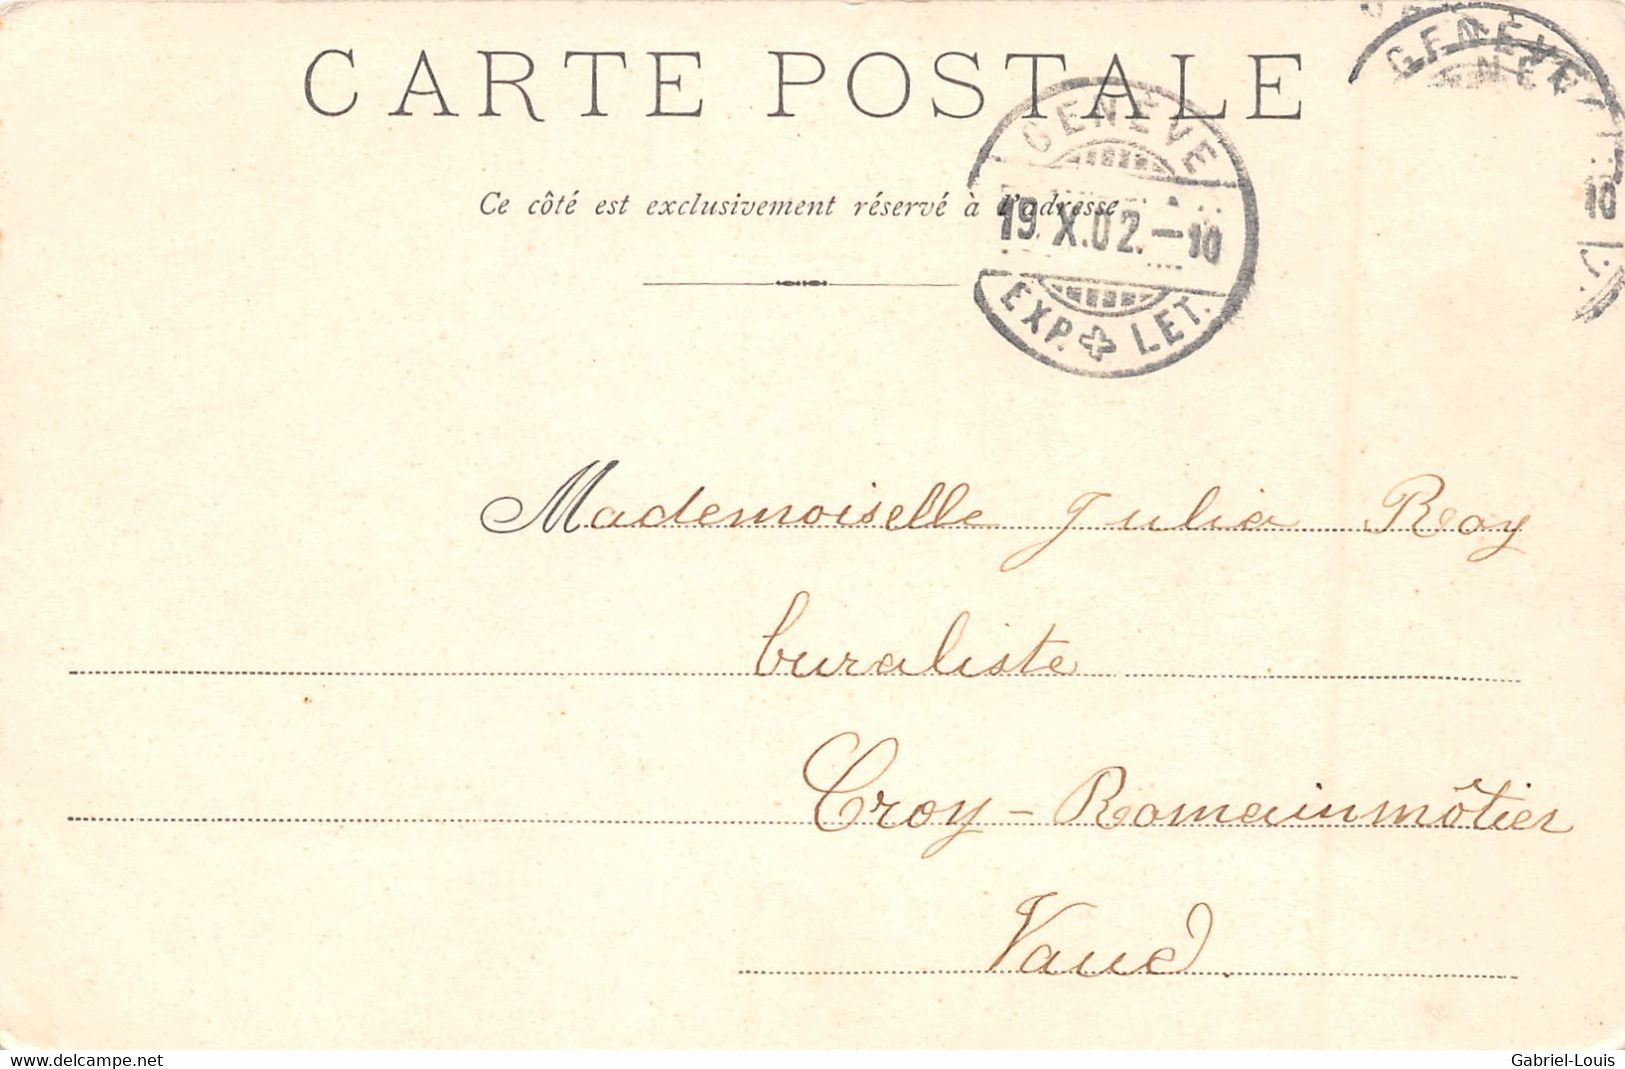 CARTE POSTALE
GENÈVE
GENÈVE
Ce côté est exclusivement réservé à l'adresse
19. X. 02. – 10
10
EXP. LET.
Mademoiselle Julia Roy
buraliste
Croy – Romainmôtier
Vaud.
www.delcampe.net
Gabriel-Louis